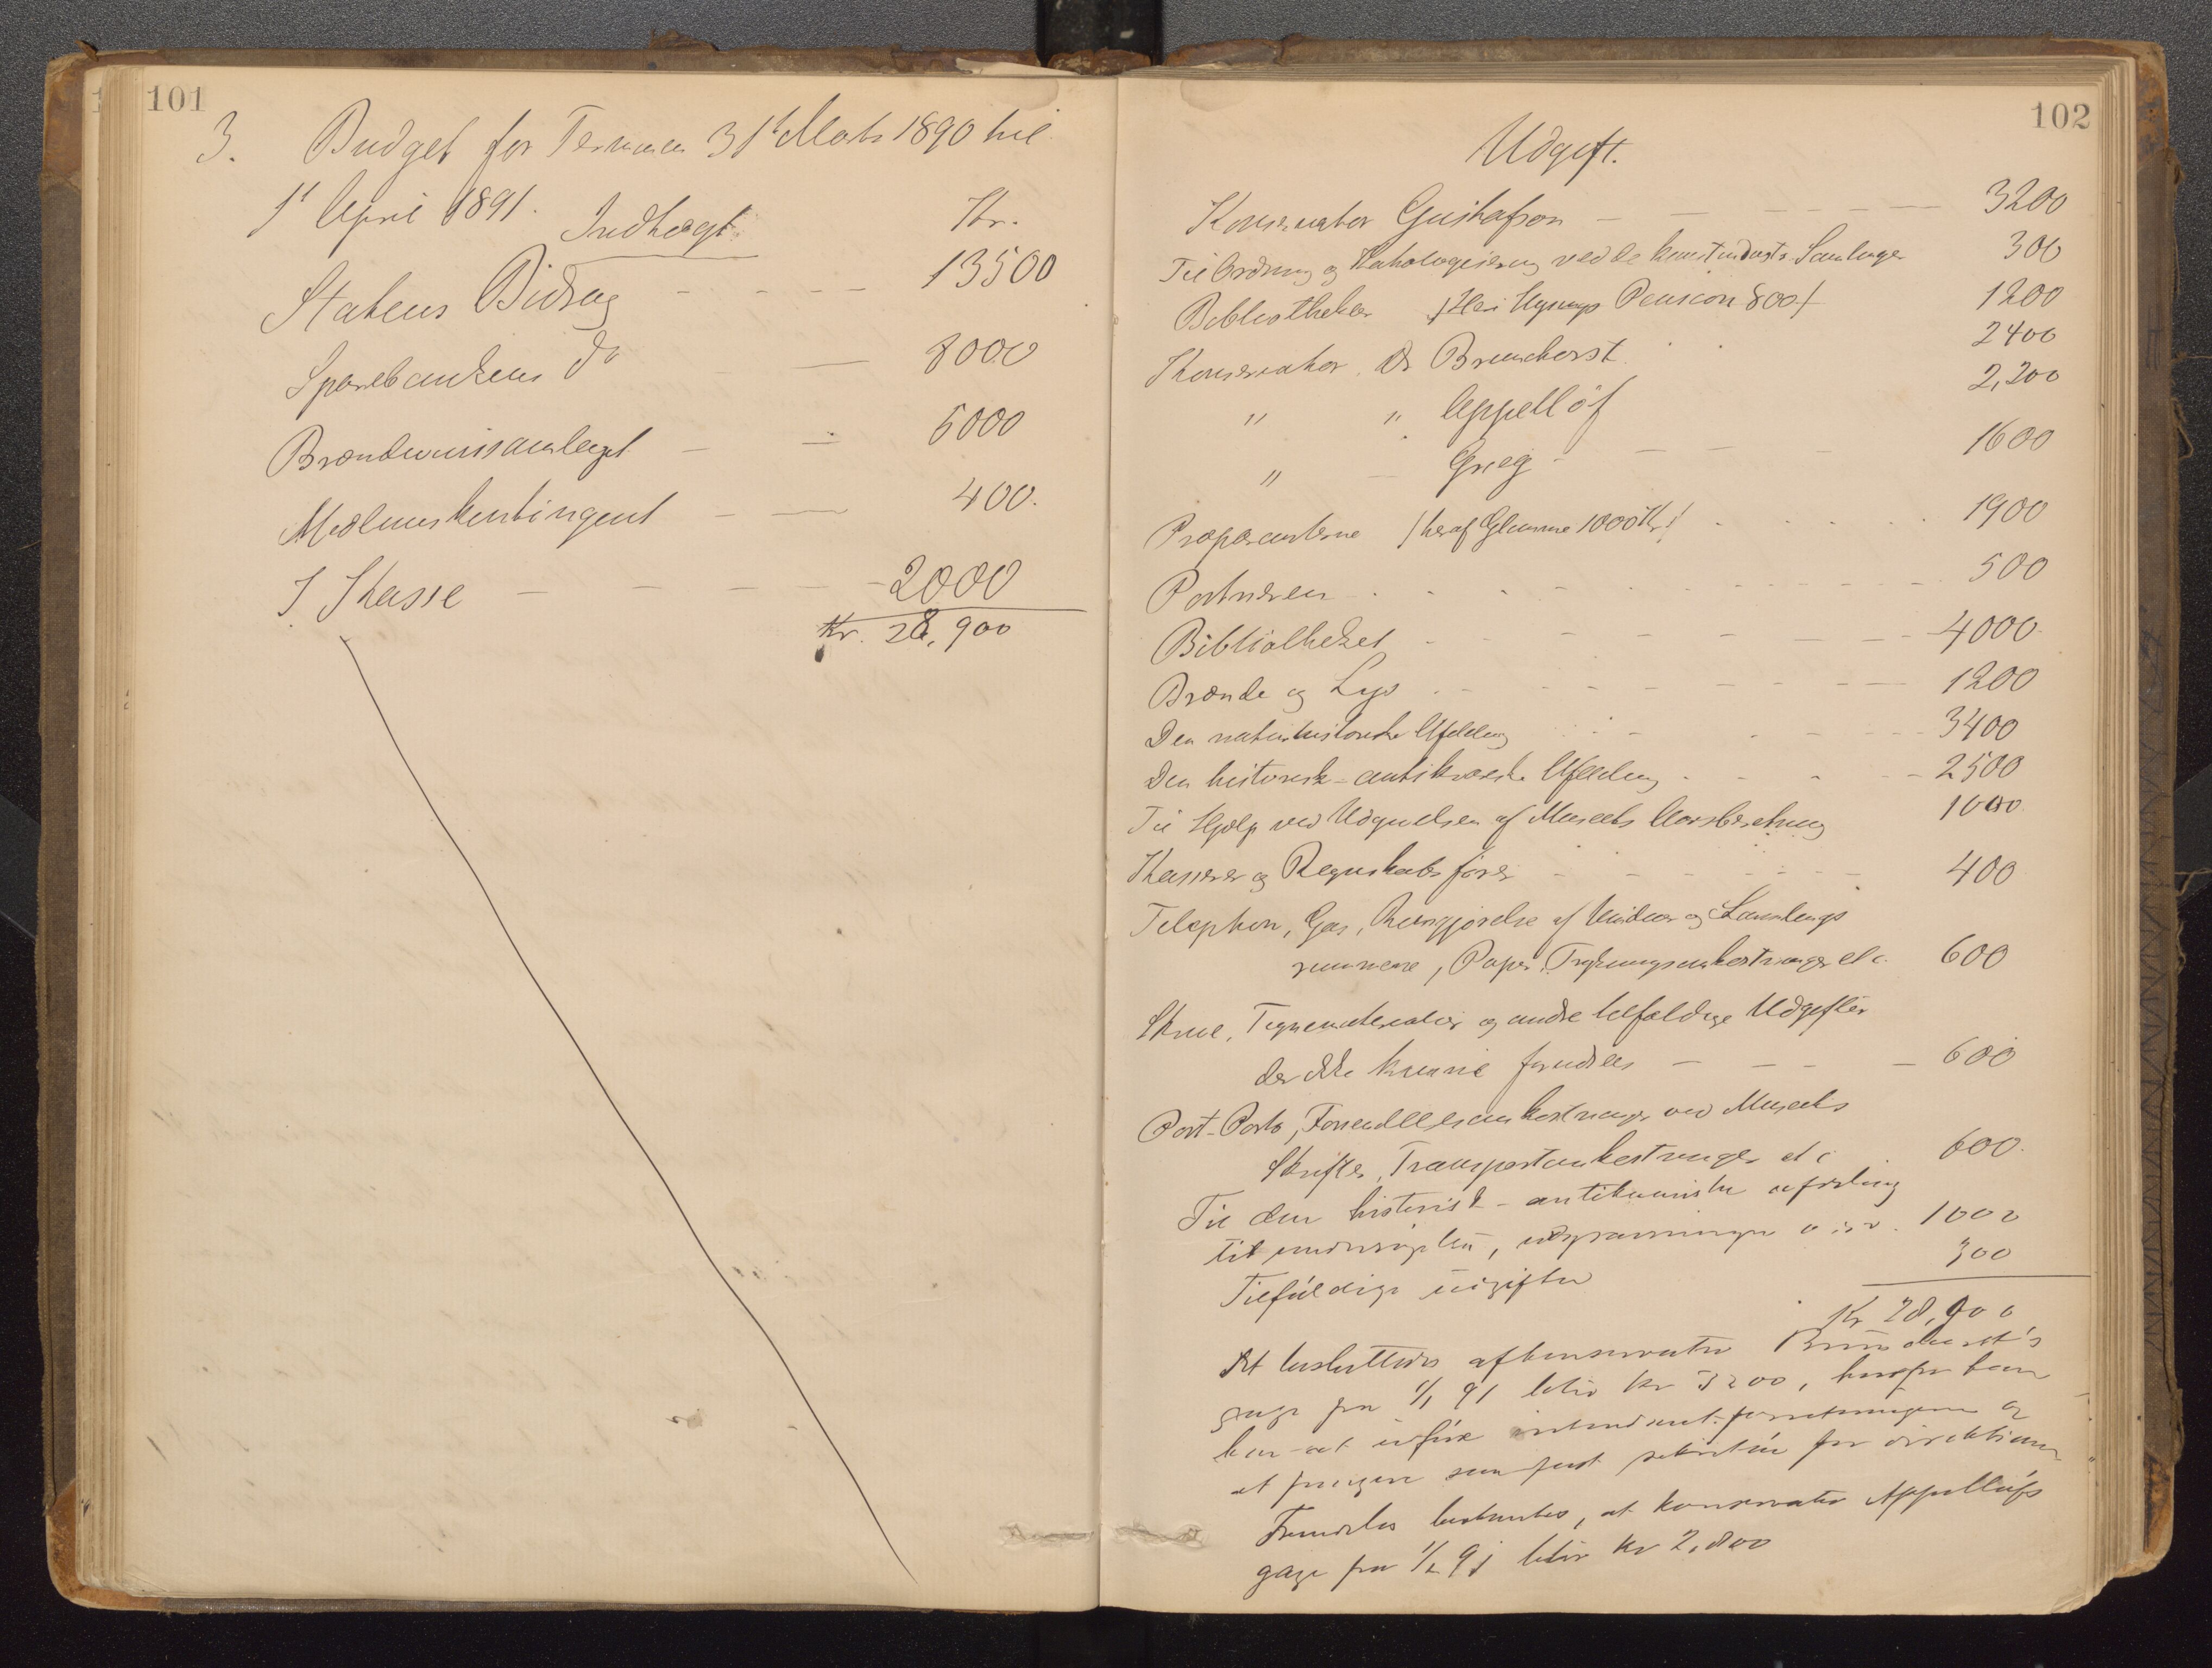 101
3. Budget for Terminen 31t Marts 1890 til
1t April 1891. Indtægt Kr.
Statens Bidrag 13500
Sparebankens do 8000
Brændevinssamlaget 5000
Medlemskontingent 400.
I Kasse 2000
Kr. 28,900
102
Udgift.
Konservator Gustafson 3200
Til Ordning og Katalogisering ved de kunstindustr. Samlinger 300
Bibliothekar Pension 800 1200
Konservator Dr Brunchorst 2400
" " Appellöf 2,200
" Grieg 1600
Præparanterne /heraf Glimme 1000 Kr/ 1900
Portneren 500
Bibliotheket 4000
Brænde og Lys 1200
Den naturhistoriske Afdeling 3400
Den historisk-antikvariske Afdeling 2500
Til Hjælp ved Udgivelsen af Museets Aarsberetning 1000
Kasserer og Regnskabsfører 400
Telephon, Gas, Rengjørelse af Vinduer og Samlings
rummene, Papir, Trykningsomkostninger etc. 600
Skrue, Tegnematerialier og andre tilfældige Udgifter
der ikke kunne forudsees 600
Post-Porto, Forsendelsesomkostninger ved Museets
Skrifter, Transportomkostninger etc 600.
Til den historisk-antikvariske afdeling
til undersøgelser, udgravninger o.s.v. 1000
Tilfældige udgifter 300
Kr 28,900
Det besluttedes at konservator Brunchorst's
gage fra 1/1 91 bliver kr 3200, hvorfor han
har at udføre intendant-forretningerne og
at fungere som fast sekretær for direktionen
Fremdeles bestemtes, at konservator Appellöfs
gage fra 1/1 91 bliver kr 2,800